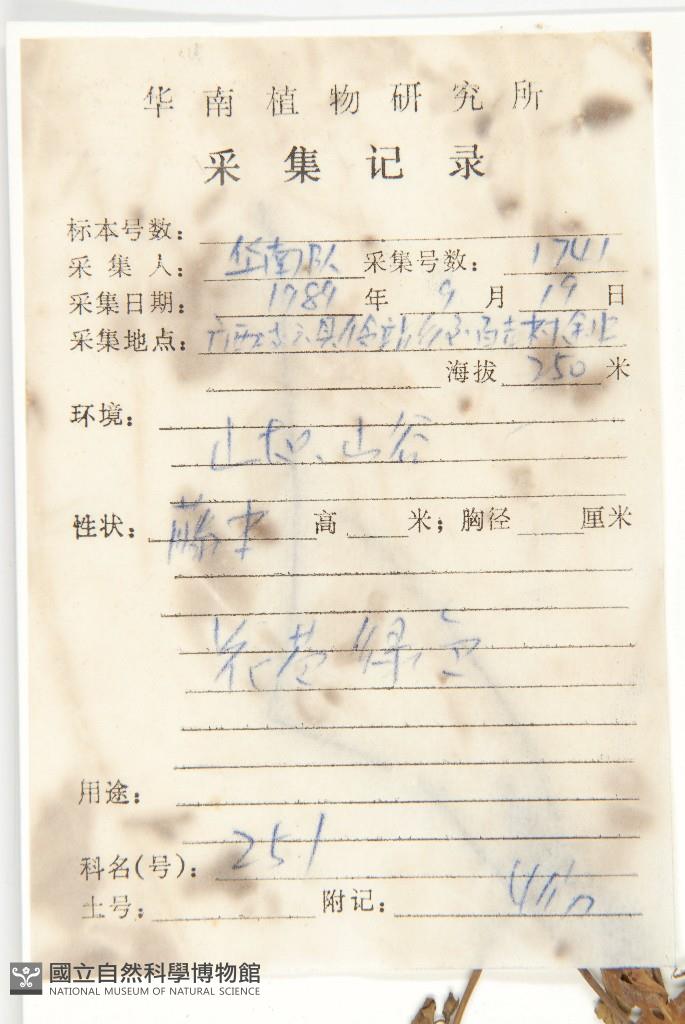 华南植物研究所
采集记录
标本号数：
采集人：华南队 采集号数：1741
采集日期：1989年9月19日
采集地点：广西
海拔 250 米
环境：
山坡、山谷
性状：藤本 高 米；胸径 厘米
花 绿色
用途：
科名(号)：251
土号： 附记：
國立自然科學博物館
NATIONAL MUSEUM OF NATURAL SCIENCE